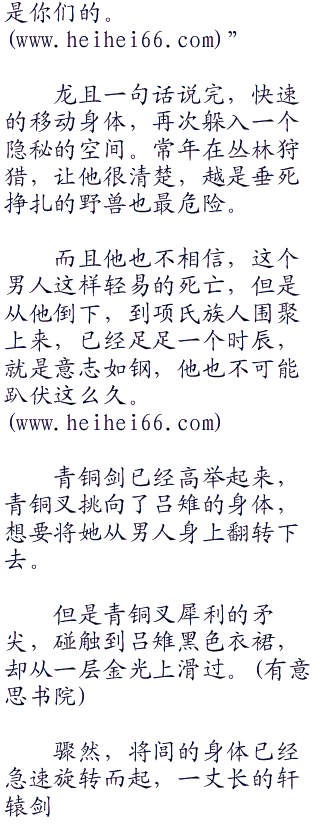 是你们的。
(www.heihei66.com)”
龙且一句话说完，快速
的移动身体，再次躲入一个
隐秘的空间。常年在丛林狩
猎，让他很清楚，越是垂死
挣扎的野兽也最危险。
而且他也不相信，这个
男人这样轻易的死亡，但是
从他倒下，到项氏族人围聚
上来，已经足足一个时辰，
就是意志如钢，他也不可能
趴伏这么久。
(www.heihei66.com)
青铜剑已经高举起来，
青铜叉挑向了吕雉的身体，
想要将她从男人身上翻转下
去。
但是青铜叉犀利的矛
尖，碰触到吕雉黑色衣裙，
却从一层金光上滑过。(有意
思书院)
骤然，将闾的身体已经
急速旋转而起，一丈长的轩
辕剑